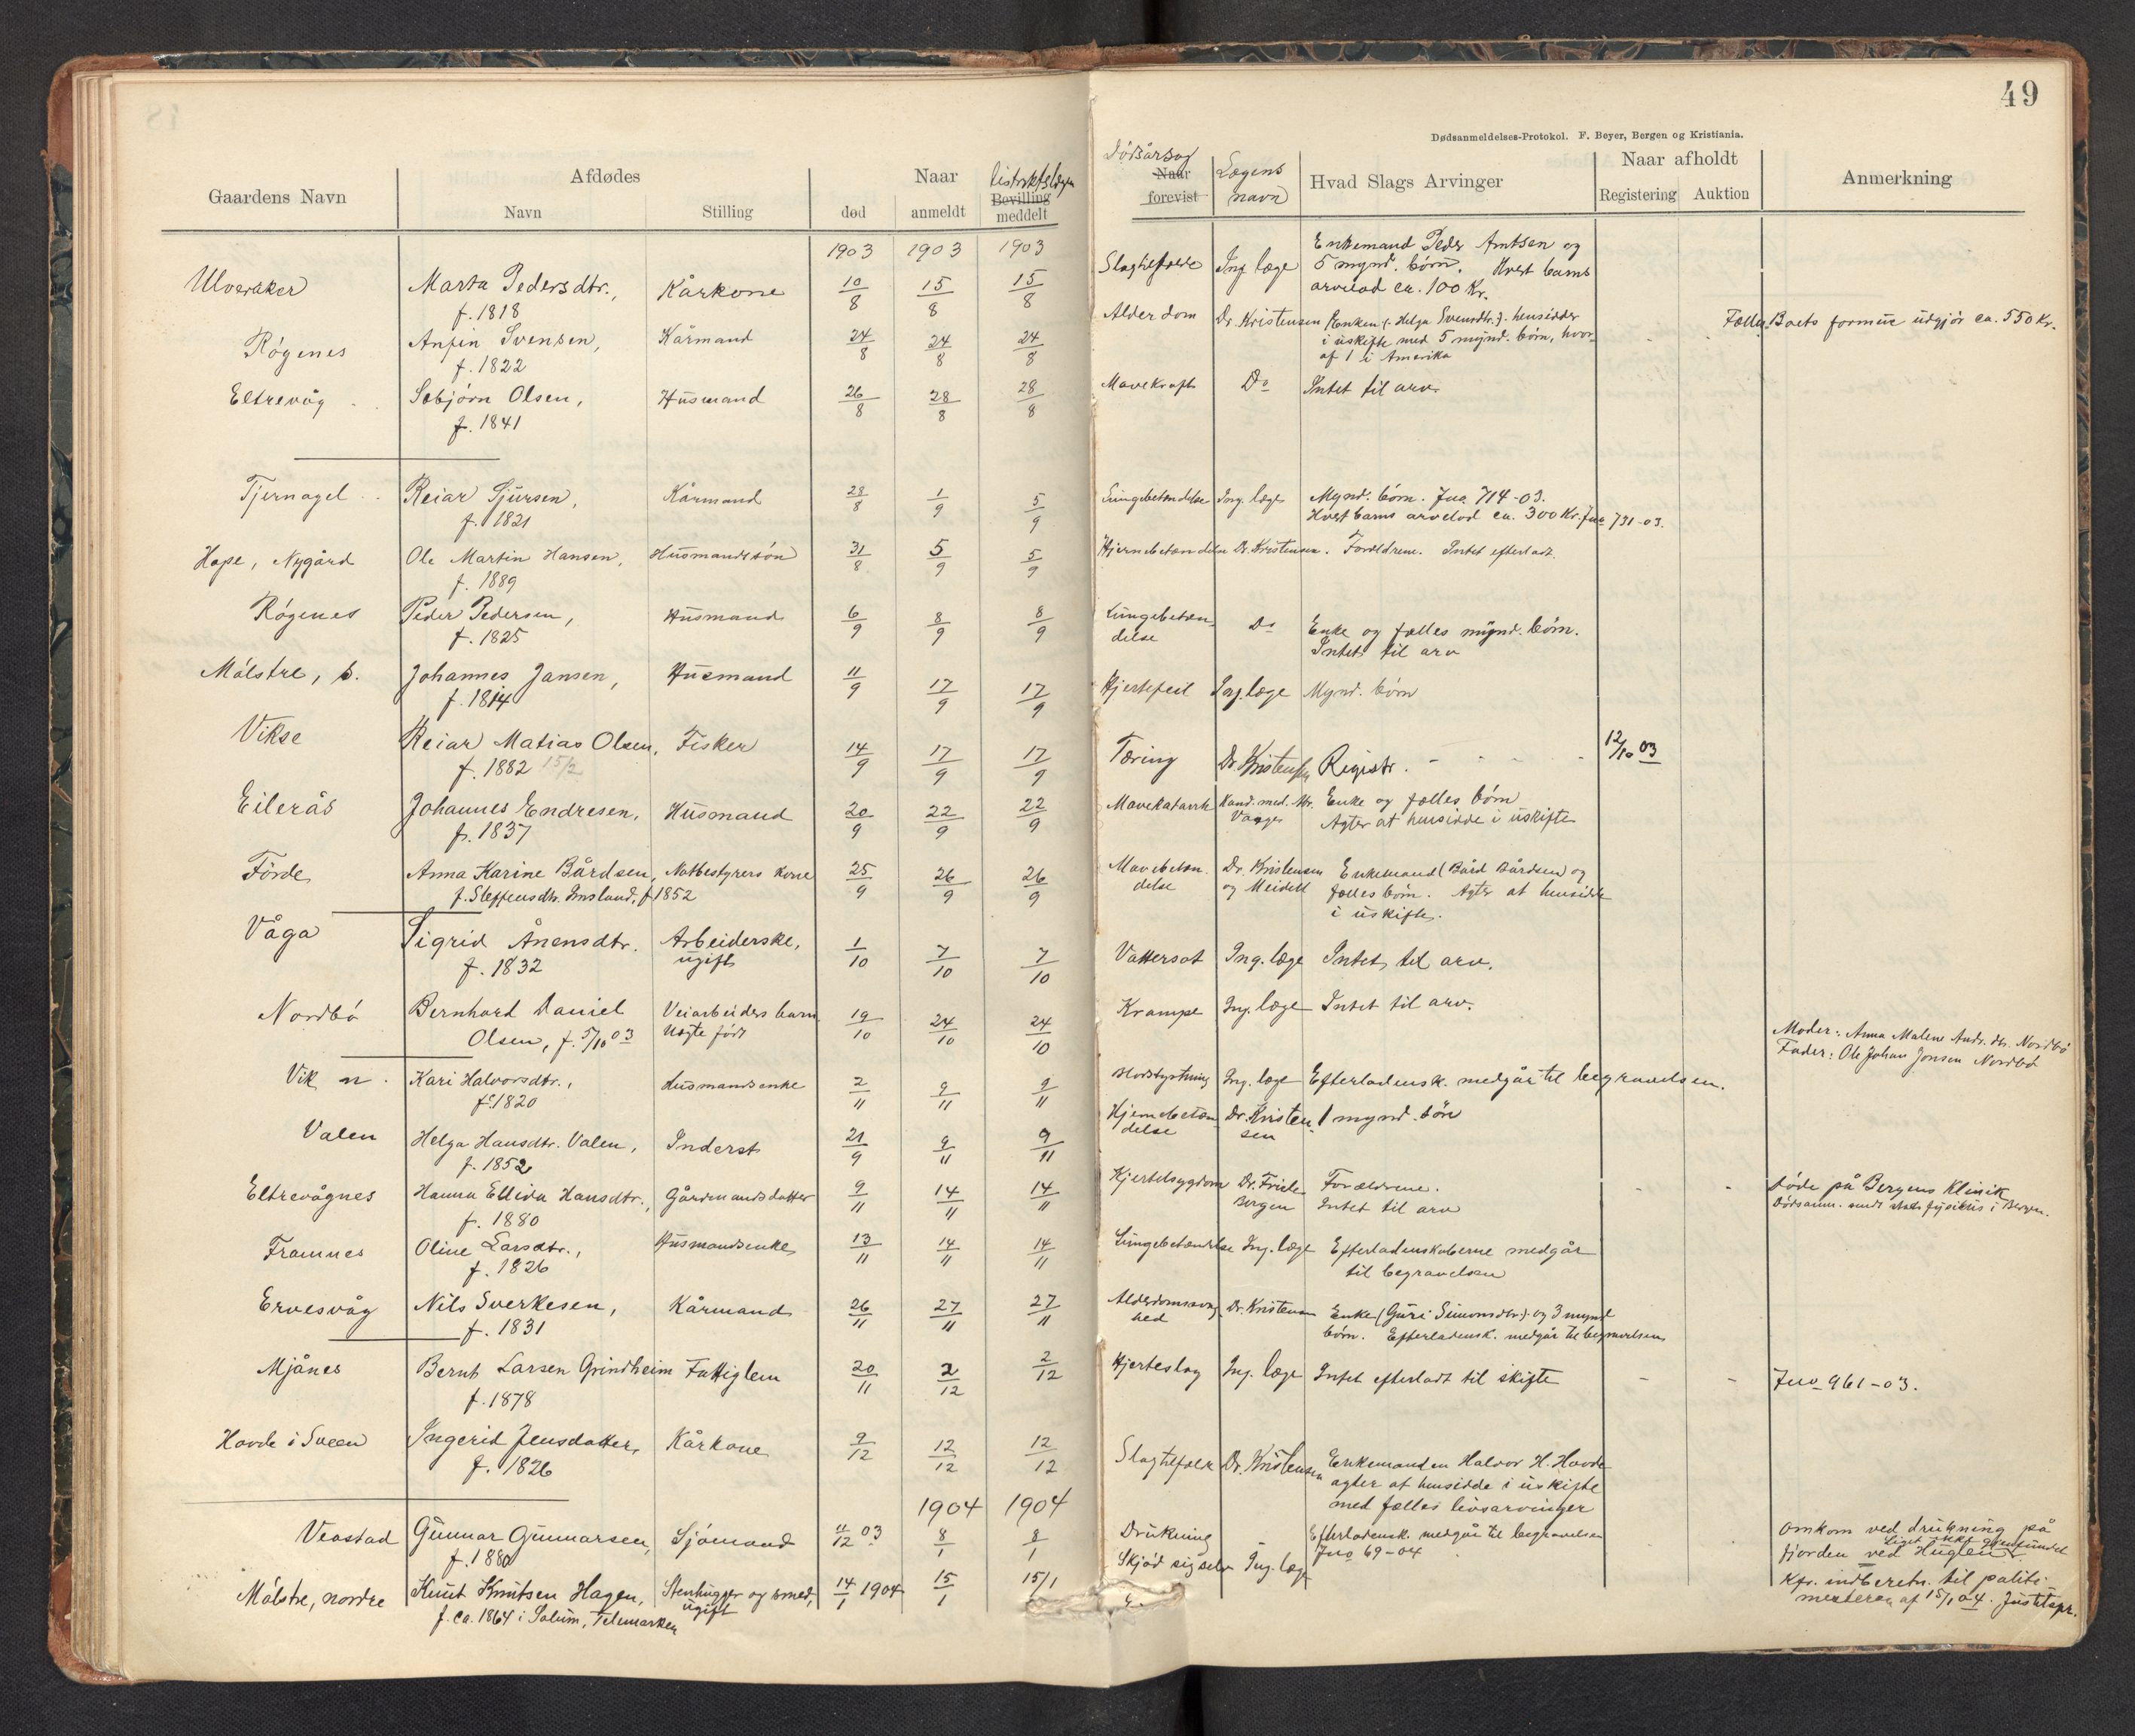 49
Dødsanmeldelses-Protokol. F. Beyer, Bergen og Kristiania.
Gaardens Navn | Afdødes | Naar | Distriktslægen | Dødsårsag | Lægens navn | Hvad Slags Arvinger | Naar afholdt | Anmerkning
Navn | Stilling | død | anmeldt | Bevilling meddelt | Naar forevist | Registering | Auktion
1903 1903 1903
Ulveraker | Marta Pedersdtr., f. 1818 | Kårkone | 10/8 | 15/8 | 15/8 | Slagtilfælde | Ing. læge | Enkemand Peder Arntsen og
5 mynd. børn. Hvert barns
arvelod ca. 100 Kr.
Røgenes | Anfin Svensen, f. 1822 | Kårmand | 24/8 | 24/8 | 24/8 | Alderdom | Dr. Kristensen | Enken (: Helga Svensdtr.:) hensidder
i uskifte med 5 mynd. børn, hvor-
af 1 i Amerika | Fælles Boets formue udgjør ca. 550 Kr.
Eltrevåg | Sebjørn Olsen, f. 1841 | Husmand | 26/8 | 28/8 | 28/8 | Mavekræft | Do | Intet til arv.
Tjernagel | Reiar Sjursen, f. 1821 | Kårmand | 28/8 | 1/9 | 5/9 | Lungebetændelse | Ing. læge | Mynd. børn. Jno 714-03.
Hvert barns arvelod ca. 300 Kr. Jno 731-03.
Hope, Nygård | Ole Martin Hansen, f. 1889 | Husmandssøn | 31/8 | 5/9 | 5/9 | Hjernebetændelse | Dr. Kristensen. | Forældrene. Intet efterladt.
Røgenes | Peder Pedersen, f. 1825 | Husmand | 6/9 | 8/9 | 8/9 | Lungebetæn-
delse | Do | Enke og fælles mynd. børn.
Intet til arv
Mølstre, s. | Johannes Jansen, f. 1814 | Husmand | 11/9 | 17/9 | 17/9 | Hjertefeil | Ing. læge | Mynd. børn
Vikse | Reiar Matias Olsen, f. 1882 15/2 | Fisker | 14/9 | 17/9 | 17/9 | Tæring | Dr. Kristensen | Registr. | 12/10 03
Eilerås | Johannes Endresen, f. 1837 | Husmand | 20/9 | 22/9 | 22/9 | Mavekatarrh | Kand. med. Hr.
Vaage | Enke og fælles børn
Agter at hensidde i uskifte
Førde | Anna Karine Bårdsen, f. Steffensdtr. Imsland, f 1852 | Notbestyrers kone | 25/9 | 26/9 | 26/9 | Mavebetæn-
delse | Dr. Kristensen
og Meidell | Enkemand (Bård Bårdsen) og
fælles børn. Agter at hensidde
i uskifte.
Våga | Sigrid Ånensdtr. f. 1832 | Arbeiderske, ugift | 1/10 | 7/10 | 7/10 | Vattersot | Ing. læge | Intet til arv.
Nordbø | Bernhard Daniel
Olsen, f. 5/10 03 | Veiarbeiders barn
Uægte født | 19/10 | 24/10 | 24/10 | Krampe | Ing. læge | Intet til arv. | Moder: Anna Malene Andr. dtr. Nordbø
Fader: Ole Johan Jonsen Nordbø
Vik n. | Kari Halvorsdtr., f. 1820 | Husmandsenke | 2/11 | 9/11 | 9/11 | Ing. læge | Efterladensk. medgår til begravelsen.
Valen | Helga Hansdtr. Valen, f. 1852 | Inderst | 21/9 | 9/11 | 9/11 | Hjernebetæn
delse | Dr. Kristen-
sen | 1 mynd. søn
Eltrevågnes | Hanna Ellida Hansdtr., f. 1880 | Gårdmandsdatter | 9/11 | 14/11 | 14/11 | Kjertelsygdom | Dr. Friele
Bergen | Forældrene.
Intet til arv | Døde på Bergens Klinik
Dødsanm. sendt stadsfysikus i Bergen.
Framnes | Oline Larsdtr., f. 1826 | Husmandsenke | 13/11 | 14/11 | 14/11 | Lungebetændelse | Ing. læge | Efterladenskaberne medgår
til begravelsen
Ervesvåg | Nils Sverkesen, f. 1831 | Kårmand | 26/11 | 27/11 | 27/11 | Alderdomssvag-
hed | Dr. Kristensen | Enke (Guri Simonsdtr.) og 3 mynd
børn. Efterladensk. medgår til begravelsen
Mjånes | Bernt Larsen Grindheim f. 1878 | Fattiglem | 20/11 | 2/12 | 2/12 | Hjerteslag | Ing. læge | Intet efterladt til skifte | Jno 961-03.
Hovde i Sveen | Ingerid Jensdatter, f. 1826 | Kårkone | 9/12 | 12/12 | 12/12 | Slagtilfælde | Dr. Kristensen | Enkemanden Halvor H. Hovde
agter at hensidde i uskifte
med fælles livsarvinger
1904 1904
Veastad | Gunnar Gunnarsen, f. 1880 | Sjømand | 11/12 03 | 8/1 | 8/1 | Drukning | - | Efterladensk. medgår til begravelsen
Jno 69-04 | Omkom ved drukning på
fjorden ved Huglen
Liget ikke gjenfundet
Mølstre, nordre | Knut Knutsen Hagen, f. ca. 1864 i Solum, Telemarken | Stenhugger og smed, ugift | 14/1 1904 | 15/1 | 15/1 | Skjød sig selv | Ing. læge | Kfr. indberetn. til politi-
mesteren af 15/1 04. Justitspr.